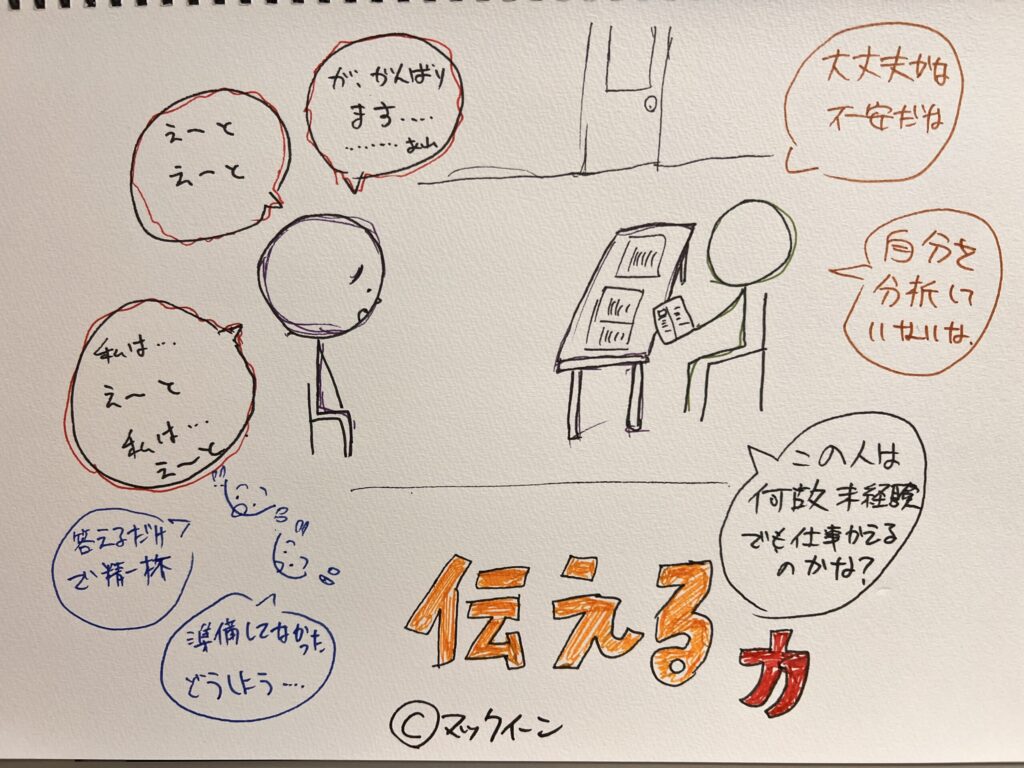 が、がんばり
ます.....
........
えーと
えーと
大丈夫かな
不安だね
自分を
分析して
いないな.
私は...
えーと
私は...
えーと
この人は
何故未経験
でも仕事かえる
のかな?
答えるだけ
で精一杯
準備してなかった
どうしよう...
伝える
力
©マックイーン